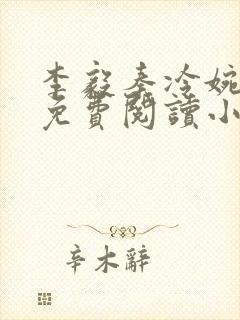 李毅秦冷婉
免費閱讀小
辛木辭